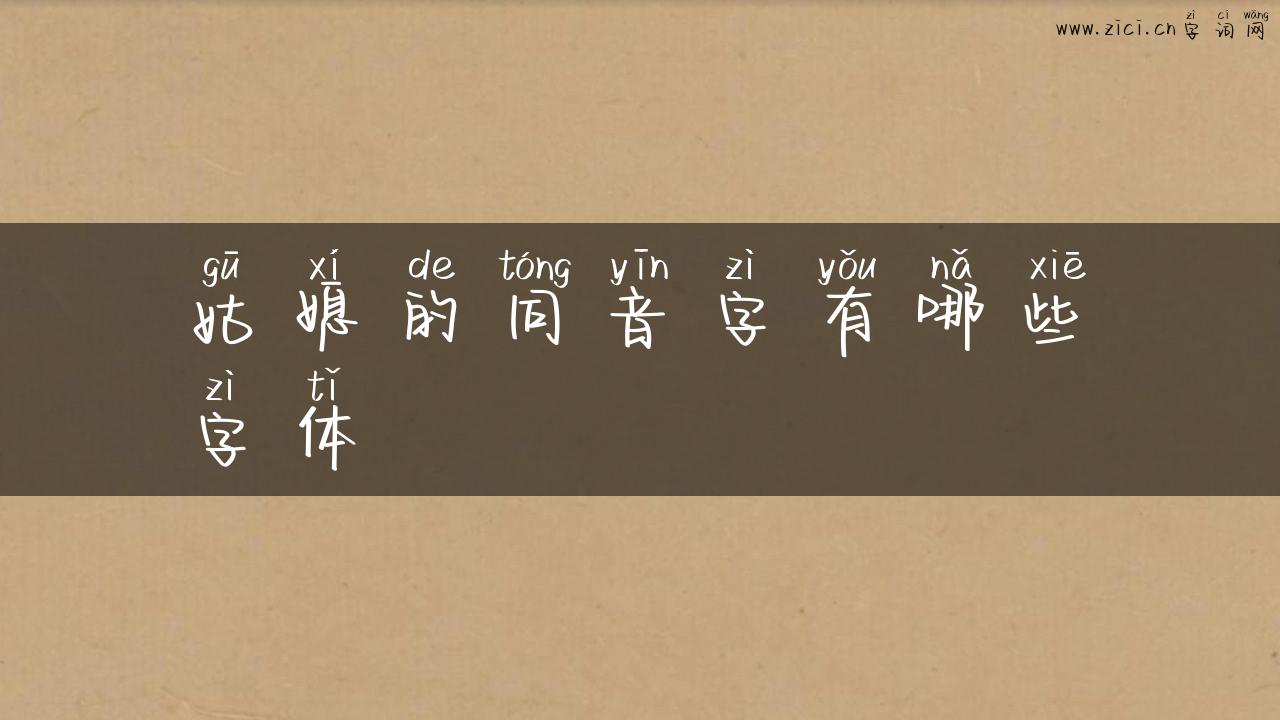 zì cí wǎng
www.zici.cn 字词网
gū xí de tóng yīn zì yǒu nǎ xiē
姑媳的同音字有哪些
zì tǐ
字体